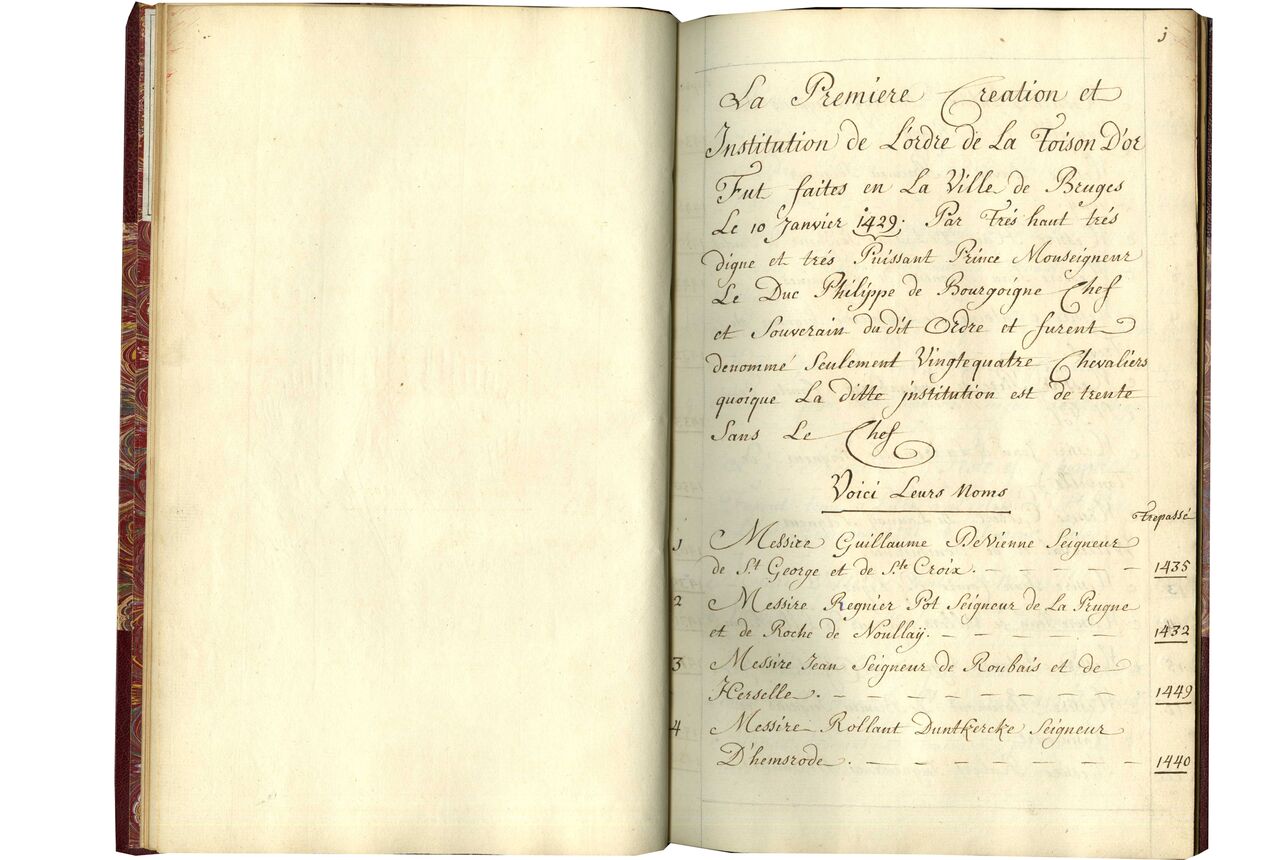 j
La Premiere Creation et
Institution de L'ordre de La Toison D'or
Fut faites en La Ville de Bruges
Le 10 Janvier 1429; Par Trés haut trés
digne et trés Puissant Prince Monseigneur
Le Duc Philippe de Bourgoigne Chef
et Souverain du dit Ordre et furent
denommé Seulement Vingtequatre Chevaliers
quoique La ditte jnstitution est de trente
Sans Le Chef
Voici Leurs Noms
Trepassé
1 Messire Guillaume DeVienne Seigneur
de St George et de Ste Croix. 1435
2 Messire Regnier Pot Seigneur de La Prugne
et de Roche de Noullaÿ. 1432
3 Messire Jean Seigneur de Roubais et de
Herselle. 1449
4 Messire Rollant Duntkercke Seigneur
D'hemsrode. 1440